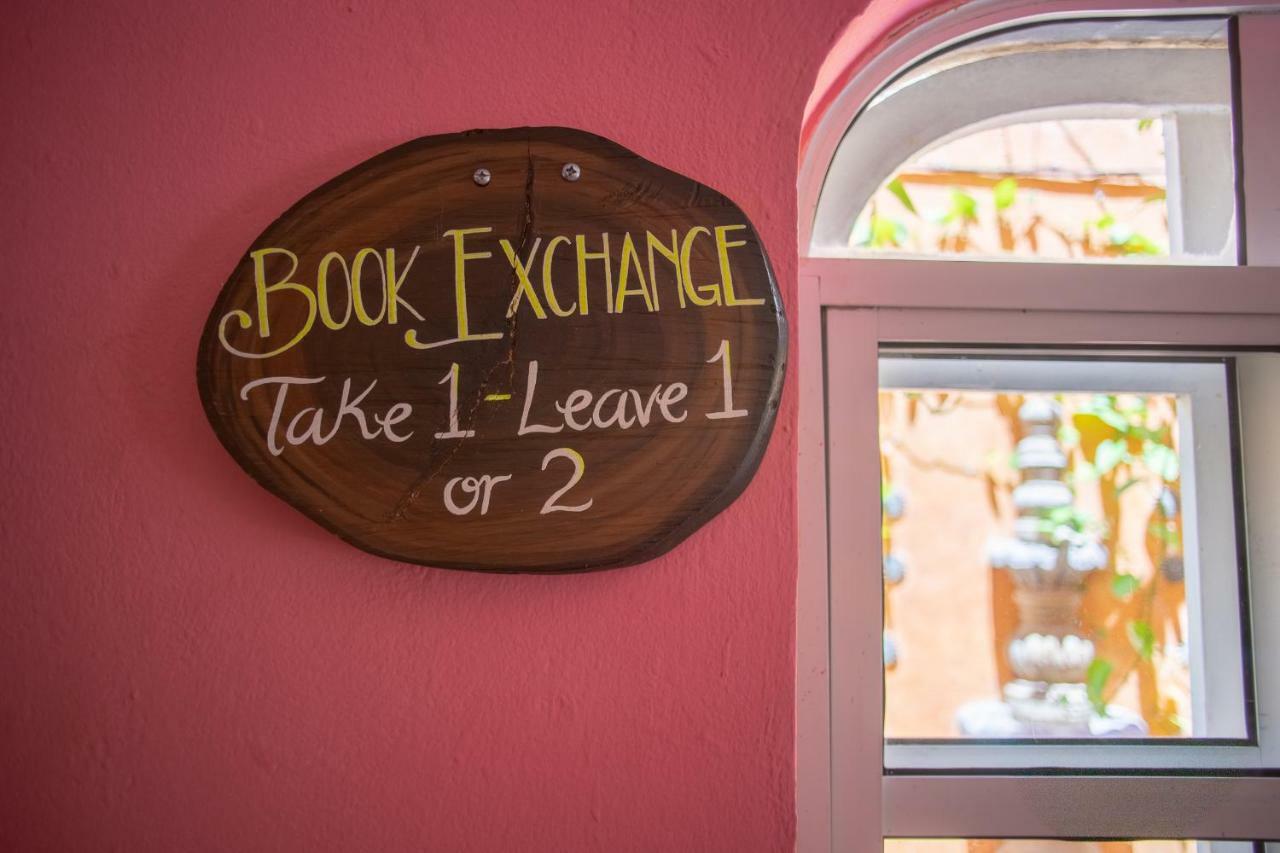 BOOK EXCHANGE
Take 1-Leave 1
or 2